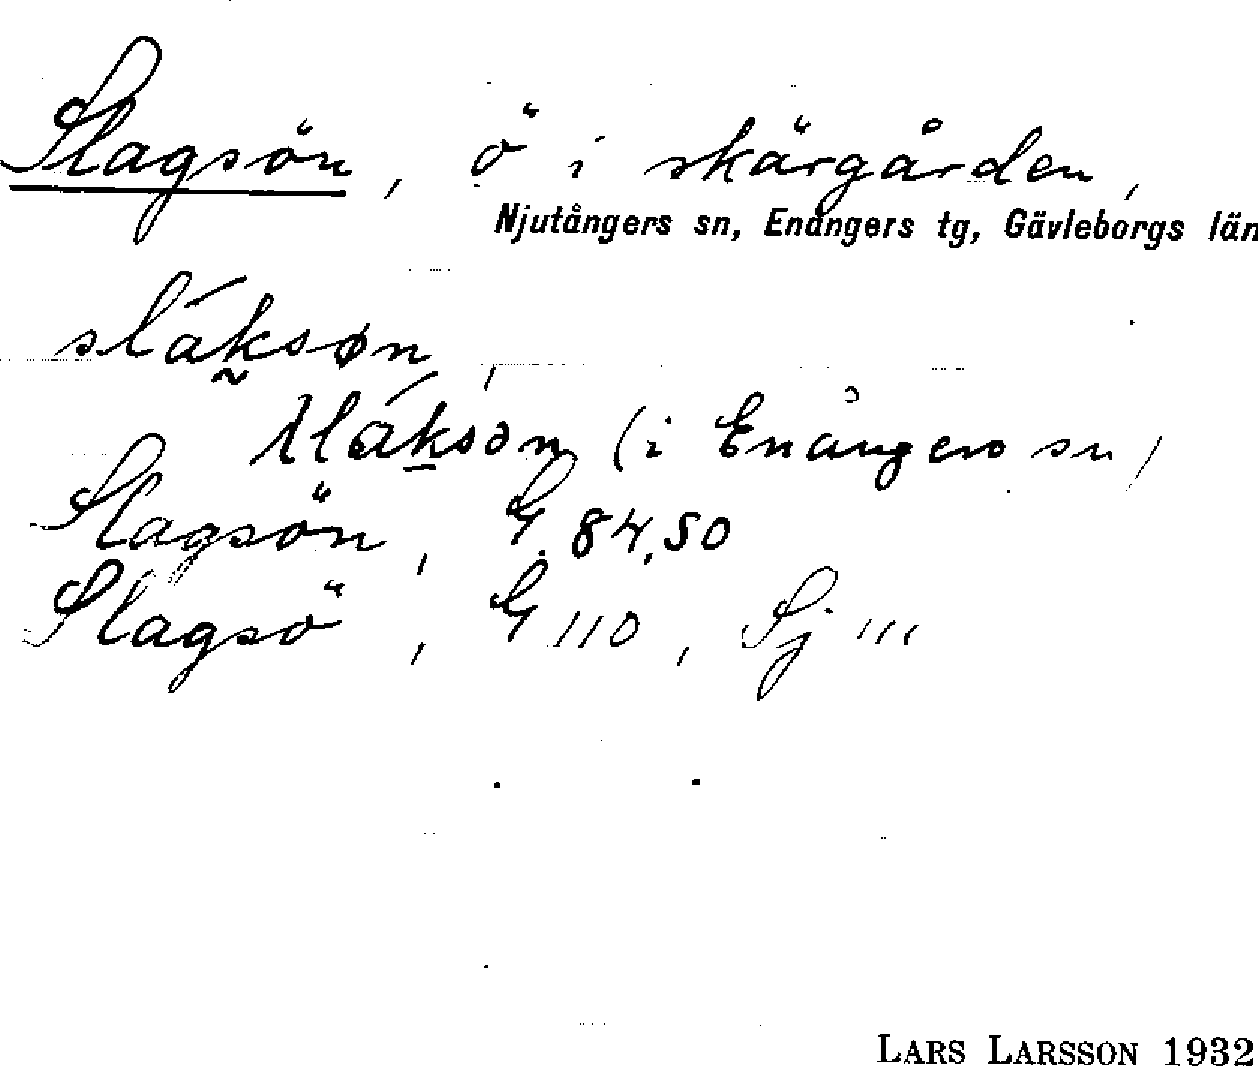 Slagsön, ö i skärgården,
Njutångers sn, Enångers tg, Gävleborgs län
sláksøn,
sláksøn (i Enångers sn)
Slagsön, G. 84,50
Slagsö, G 110, Sj 111
LARS LARSSON 1932